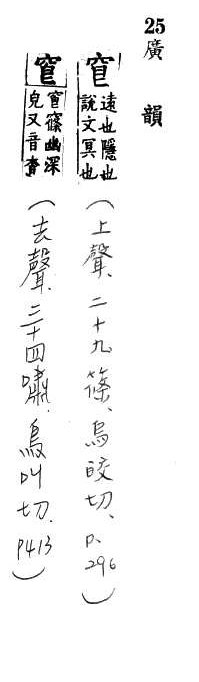 25
廣韻
窅
遠也隱也
說文冥也
(上聲、二十九篠、烏皎切、P.296)
窅
窅篠幽深
皃又音杳
(去聲、三十四嘯、烏叫切、P413)